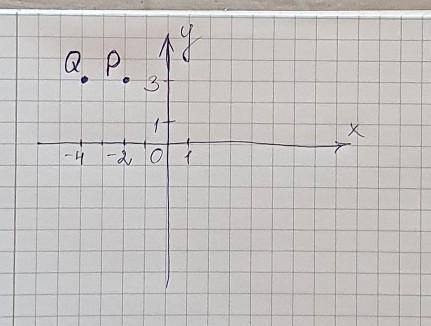 y
Q P
3
1
x
-4 -2 0 1